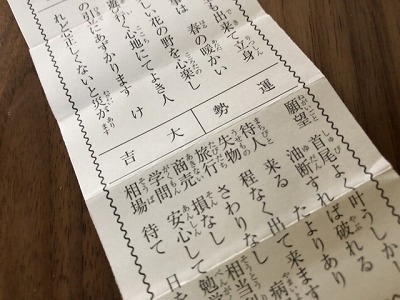 も出来て立身
春の暖かい
しい花の野を心楽し
遊行く心地にてよき人
の引にあずかります
れ正しくないと災が
運勢
大吉
願望 首尾よく叶うしかし
油断すれば破れる
待人 来る たよりあり
失物 程なく出て来ます
旅行 さわりなし
商売 損なし 相当
学問 安心して勉学
相場 待て